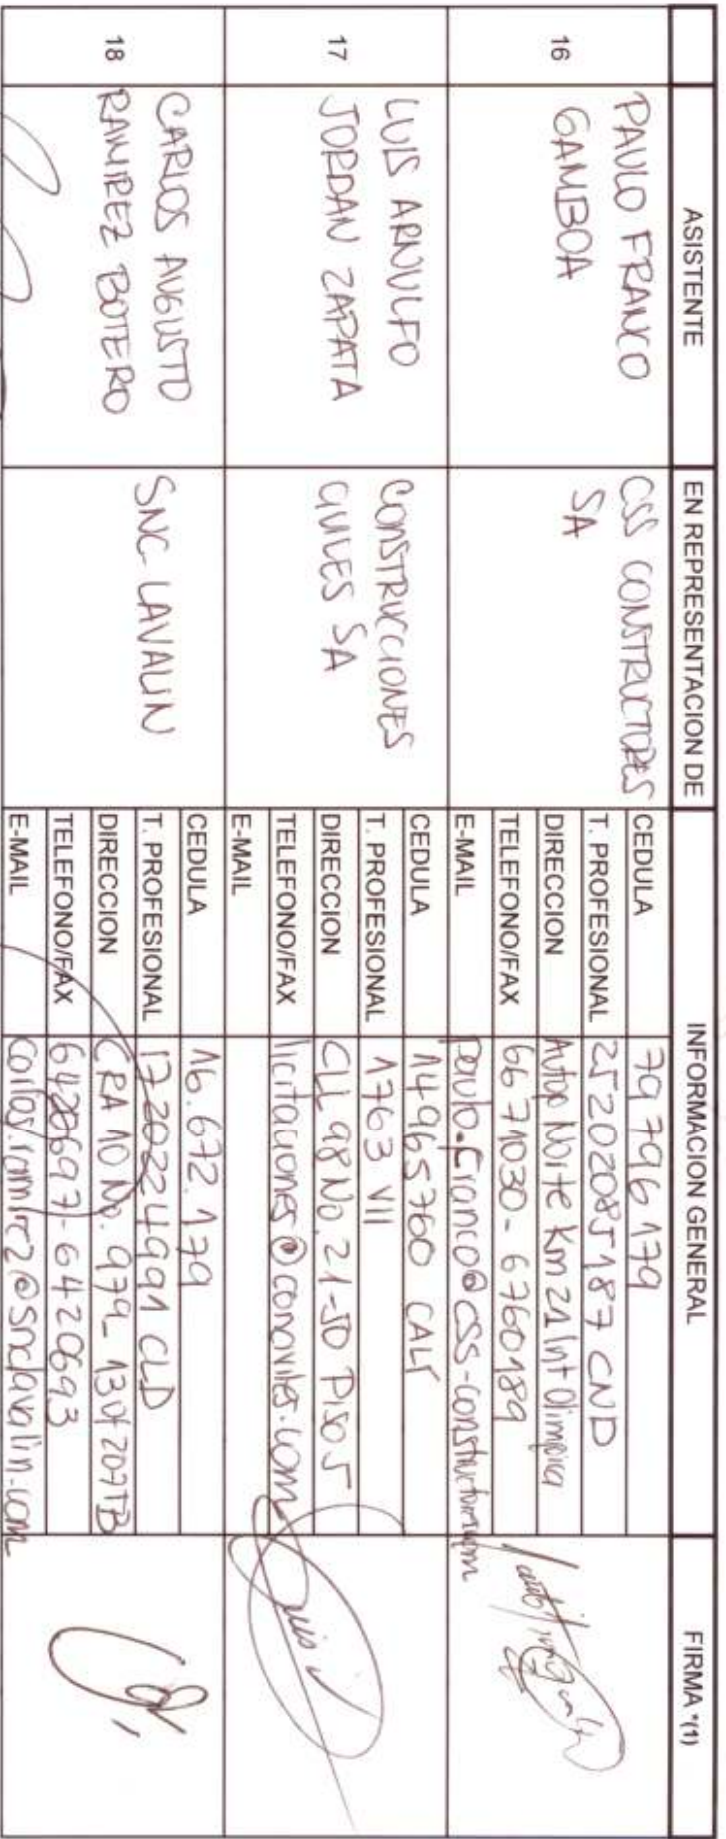 ASISTENTE EN REPRESENTACION DE INFORMACION GENERAL FIRMA *(1)
16
PAULO FRANCO
GAMBOA
CSS CONSTRUCTORES
SA
CEDULA 79 796 179
T. PROFESIONAL 25202085187 CND
DIRECCION Autop Norte Km 21 Int Olimpica
TELEFONO/FAX 6671030 - 6760189
E-MAIL paulo.franco@css-constructores.com
17
LUIS ARNULFO
JORDAN ZAPATA
CONSTRUCCIONES
CIVILES SA
CEDULA 14965760 CALI
T. PROFESIONAL 1763 VII
DIRECCION CLL 98 No. 21-50 PISO 5
TELEFONO/FAX
E-MAIL licitaciones@conciviles.com
18
CARLOS AUGUSTO
RAMIREZ BOTERO
SNC LAVALIN
CEDULA 16.672.179
T. PROFESIONAL 1720224991 CLD
DIRECCION CRA 10 No. 97A-13 Of 207 TB
TELEFONO/FAX 6420697-6420693
E-MAIL carlos.ramirez@snclavalin.com